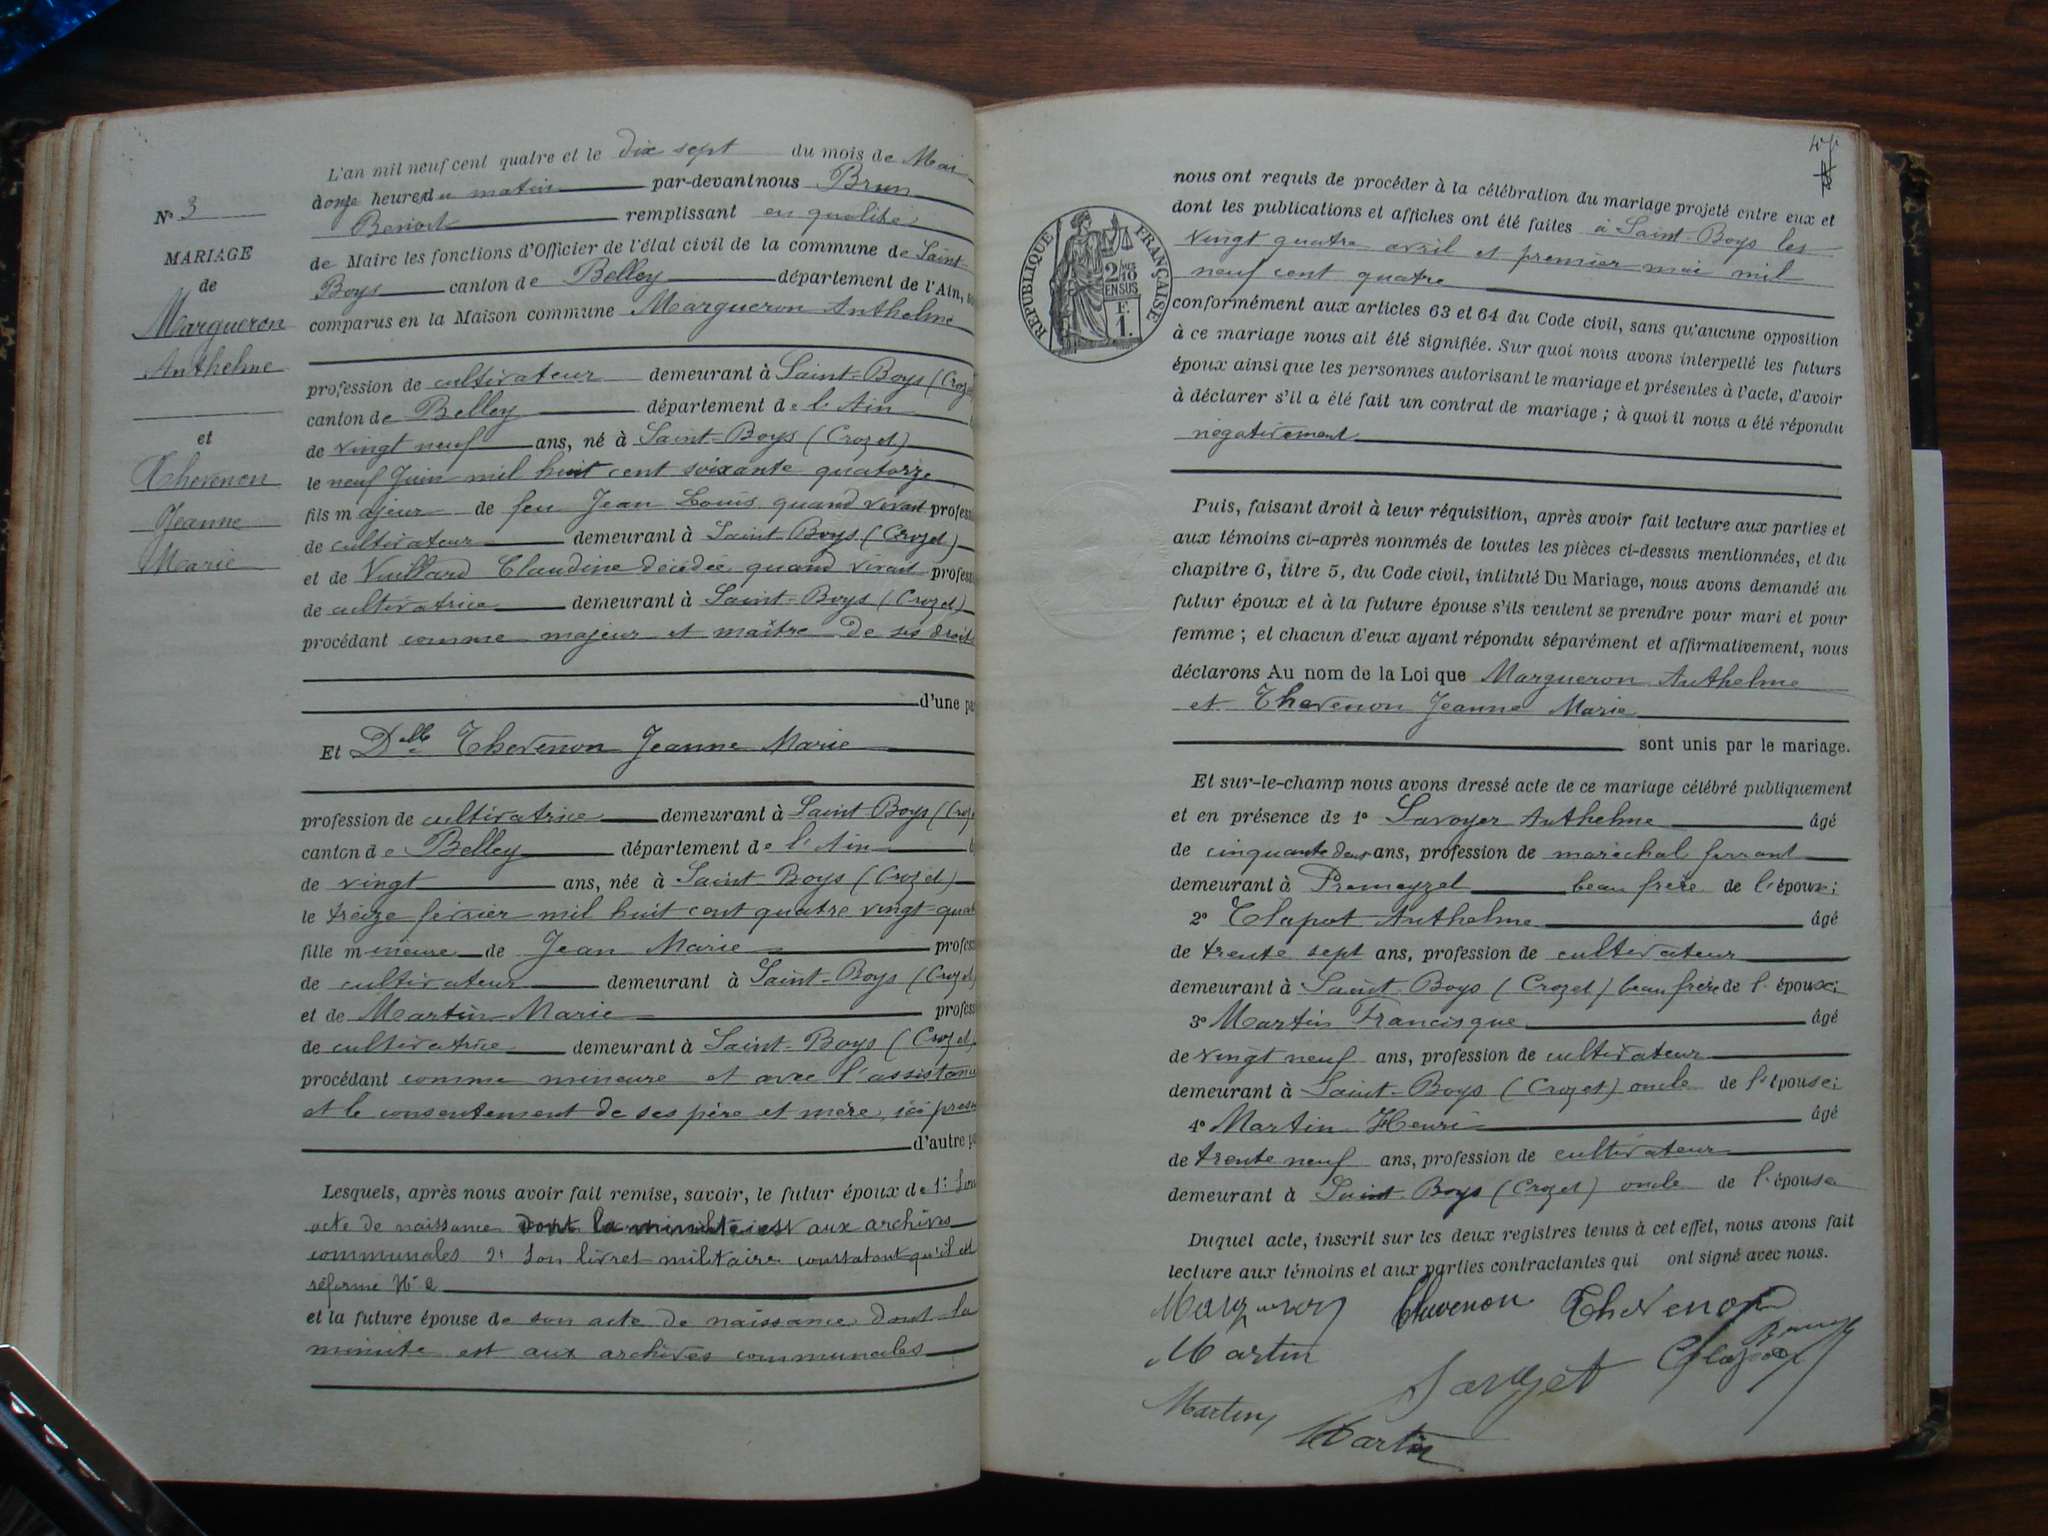 N° 3
MARIAGE
de
Margueron
Anthelme
et
Thevenon
Jeanne
Marie
L'an mil neuf cent quatre et le dix sept du mois de Mai
à onze heures du matin par-devant nous Brun
Benoit remplissant en qualité
de Maire les fonctions d'Officier de l'état civil de la commune de Saint-
Boys canton de Belley département de l'Ain,
comparus en la Maison commune Margueron Anthelme
profession de cultivateur demeurant à Saint-Boys (Crozet
canton de Belley département de l'Ain
de vingt neuf ans, né à Saint-Boys (Crozet)
le neuf Juin mil huit cent soixante quatorze
fils majeur de feu Jean Louis quand vivant profess
de cultivateur demeurant à Saint-Boys (Crozet)
et de Vuillard Claudine décédée quand vivait profess
de cultivatrice demeurant à Saint-Boys (Crozet)
procédant comme majeur et maître de ses droits
d'une pa
Et Delle Thevenon Jeanne Marie
profession de cultivatrice demeurant à Saint-Boys (Croz
canton de Belley département de l'Ain
de vingt ans, née à Saint-Boys (Crozet)
le treize février mil huit cent quatre vingt-quat
fille mineure de Jean Marie profess
de cultivateur demeurant à Saint-Boys (Crozet
et de Martin Marie profess
de cultivatrice demeurant à Saint-Boys (Crozet)
procédant comme mineure et avec l'assistance
et le consentement de ses père et mère, ici prés
d'autre pa
Lesquels, après nous avoir fait remise, savoir, le futur époux de 1° Son
acte de naissance dont la minute est aux archives
communales 2° Son livret militaire constatant qu'il est
réformé N° 2
et la future épouse de son acte de naissance dont la
minute est aux archives communales
RÉPUBLIQUE FRANÇAISE
2/10 EN SUS
F.
1.
nous ont requis de procéder à la célébration du mariage projeté entre eux et
dont les publications et affiches ont été faites à Saint-Boys les
vingt quatre avril et premier mai mil
neuf cent quatre
conformément aux articles 63 et 64 du Code civil, sans qu'aucune opposition
à ce mariage nous ait été signifiée. Sur quoi nous avons interpellé les futurs
époux ainsi que les personnes autorisant le mariage et présentes à l'acte, d'avoir
à déclarer s'il a été fait un contrat de mariage ; à quoi il nous a été répondu
négativement
Puis, faisant droit à leur réquisition, après avoir fait lecture aux parties et
aux témoins ci-après nommés de toutes les pièces ci-dessus mentionnées, et du
chapitre 6, titre 5, du Code civil, intitulé Du Mariage, nous avons demandé au
futur époux et à la future épouse s'ils veulent se prendre pour mari et pour
femme ; et chacun d'eux ayant répondu séparément et affirmativement, nous
déclarons Au nom de la Loi que Margueron Anthelme
et Thevenon Jeanne Marie
sont unis par le mariage.
Et sur-le-champ nous avons dressé acte de ce mariage célébré publiquement
et en présence de 1° Savoyer Anthelme âgé
de cinquante deux ans, profession de maréchal ferrant
demeurant à Premeyzel beau frère de l'époux;
2° Clapot Anthelme âgé
de trente sept ans, profession de cultivateur
demeurant à Saint-Boys (Crozet) beau frère de l'époux;
3° Martin Francisque âgé
de vingt neuf ans, profession de cultivateur
demeurant à Saint-Boys (Crozet) oncle de l'épouse;
4° Martin Henri âgé
de trente neuf ans, profession de cultivateur
demeurant à Saint-Boys (Crozet) oncle de l'épouse
Duquel acte, inscrit sur les deux registres tenus à cet effet, nous avons fait
lecture aux témoins et aux parties contractantes qui ont signé avec nous.
Margueron Thevenon Thevenon
Martin Clapot Brun
Martin Martin